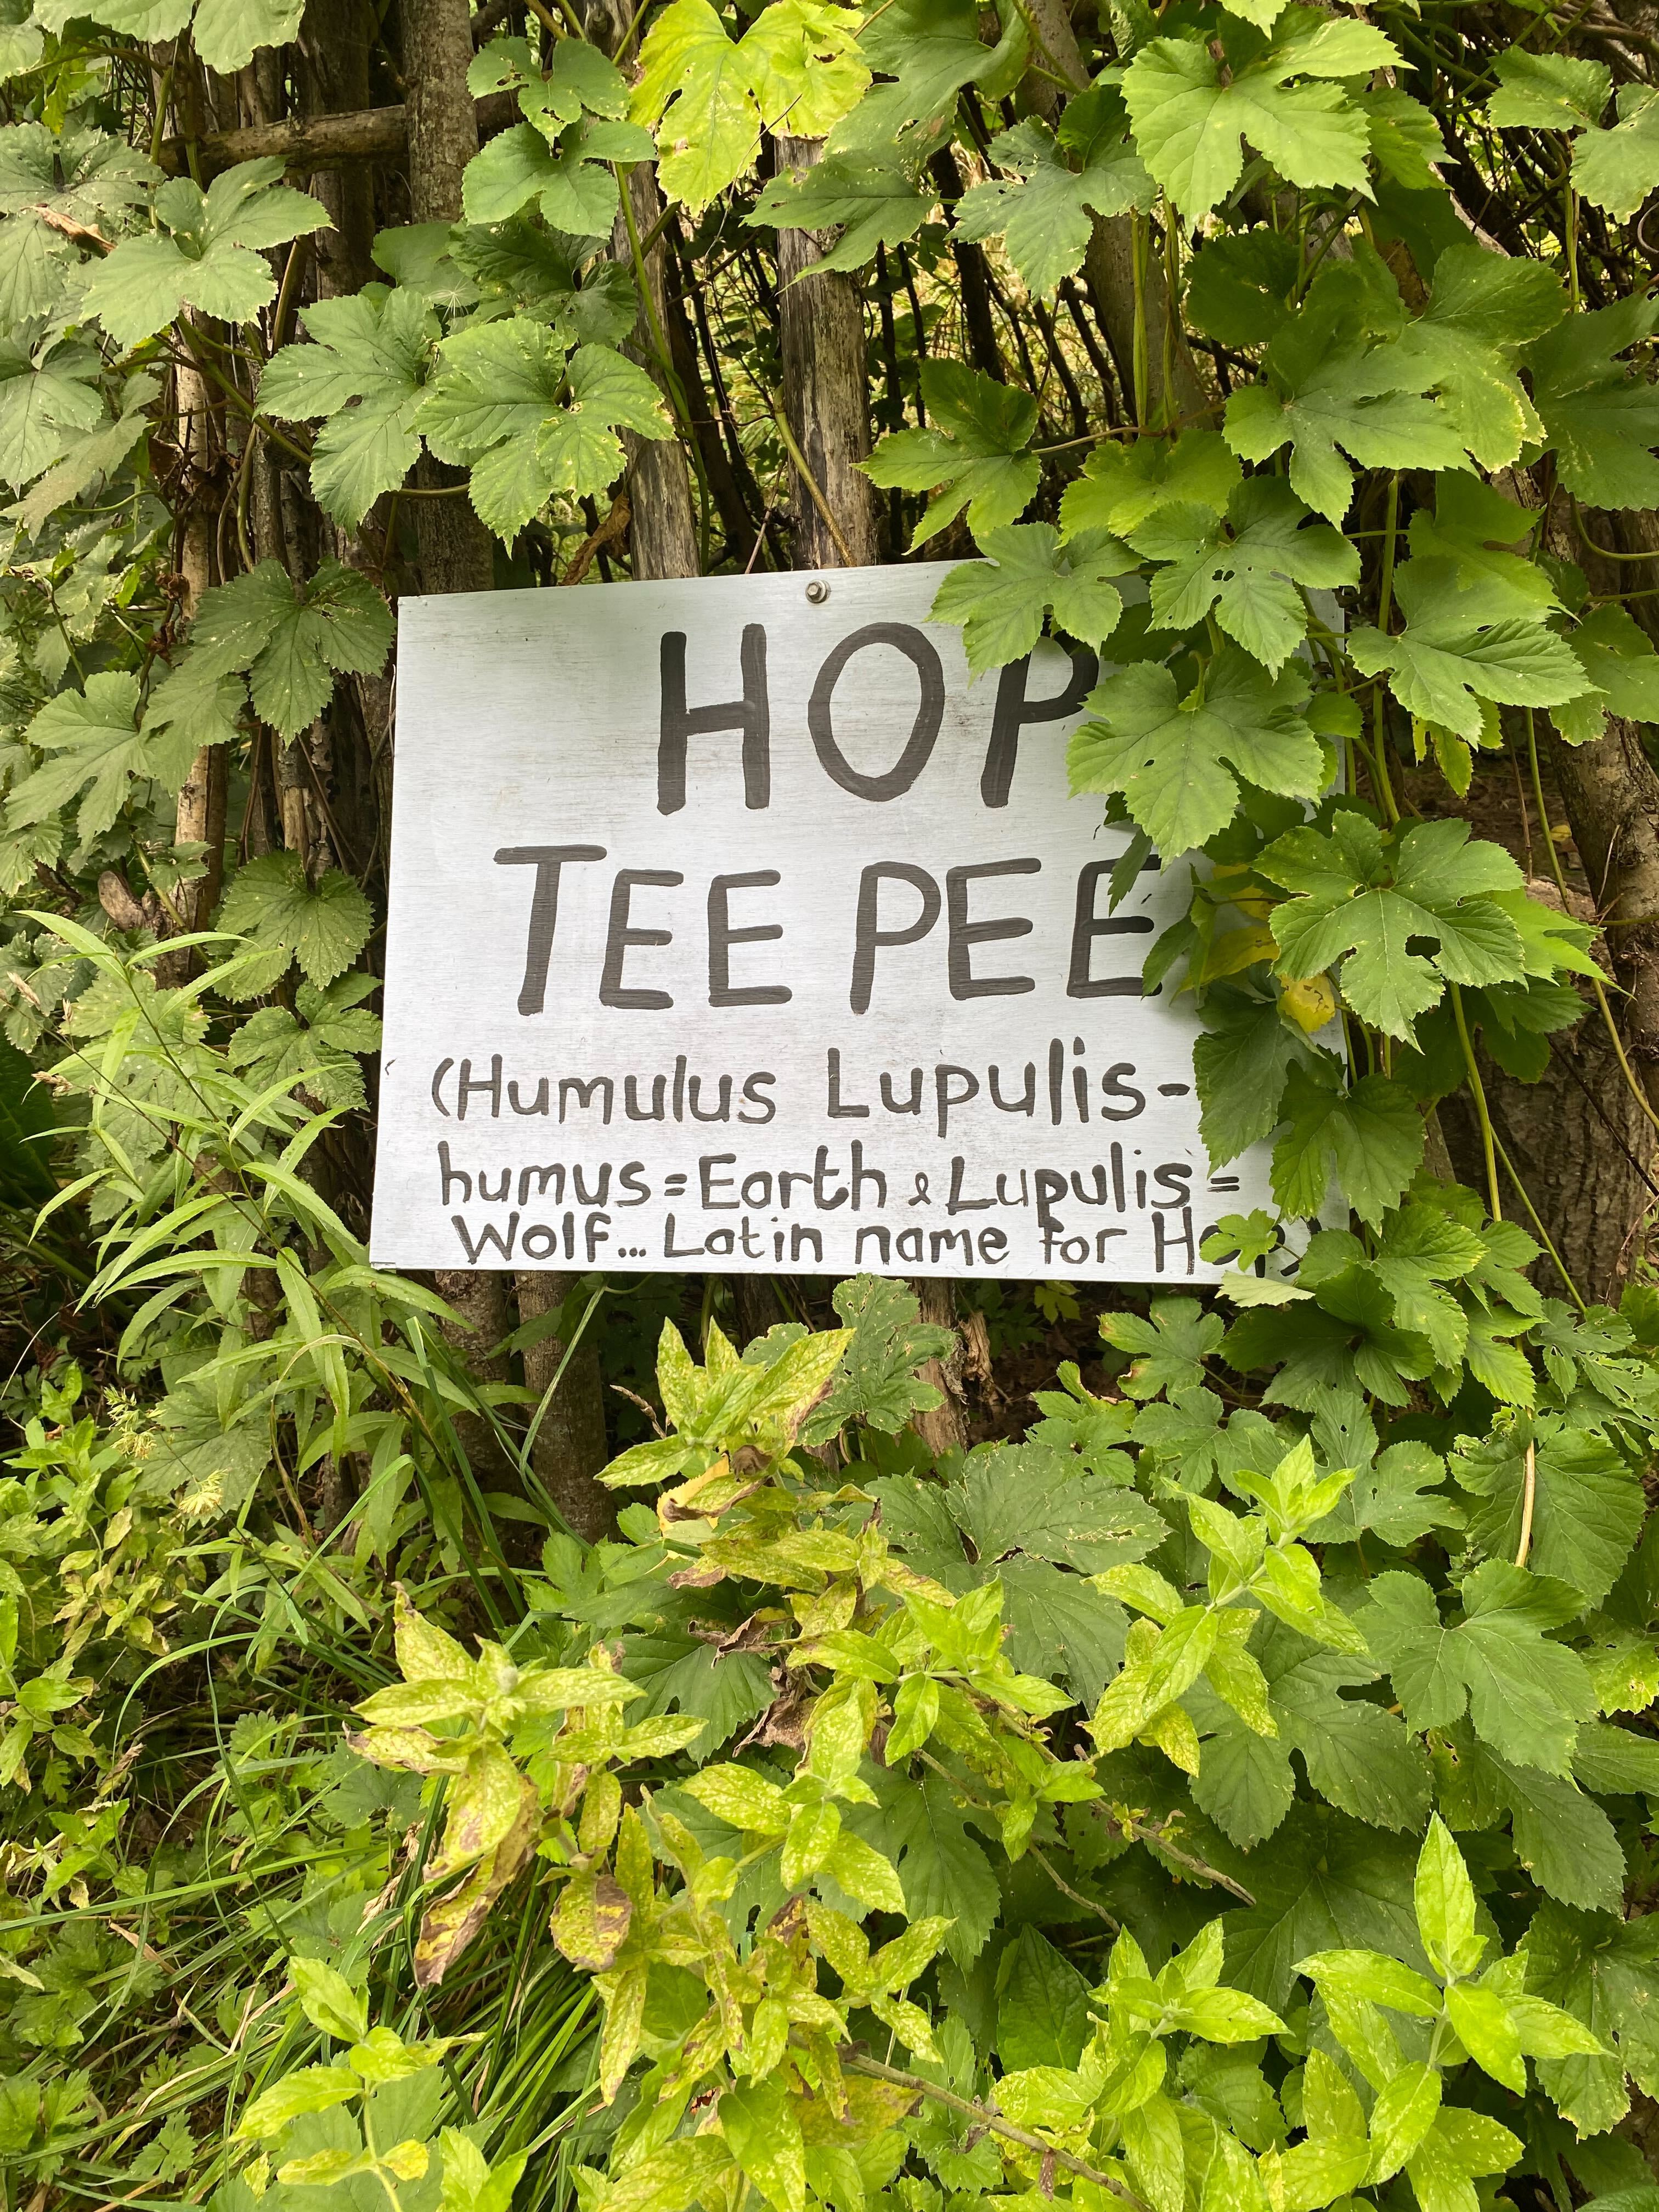 HOP
TEE PEE
(Humulus Lupulis-
humus = Earth & Lupulis =
Wolf... Latin name for Hop)